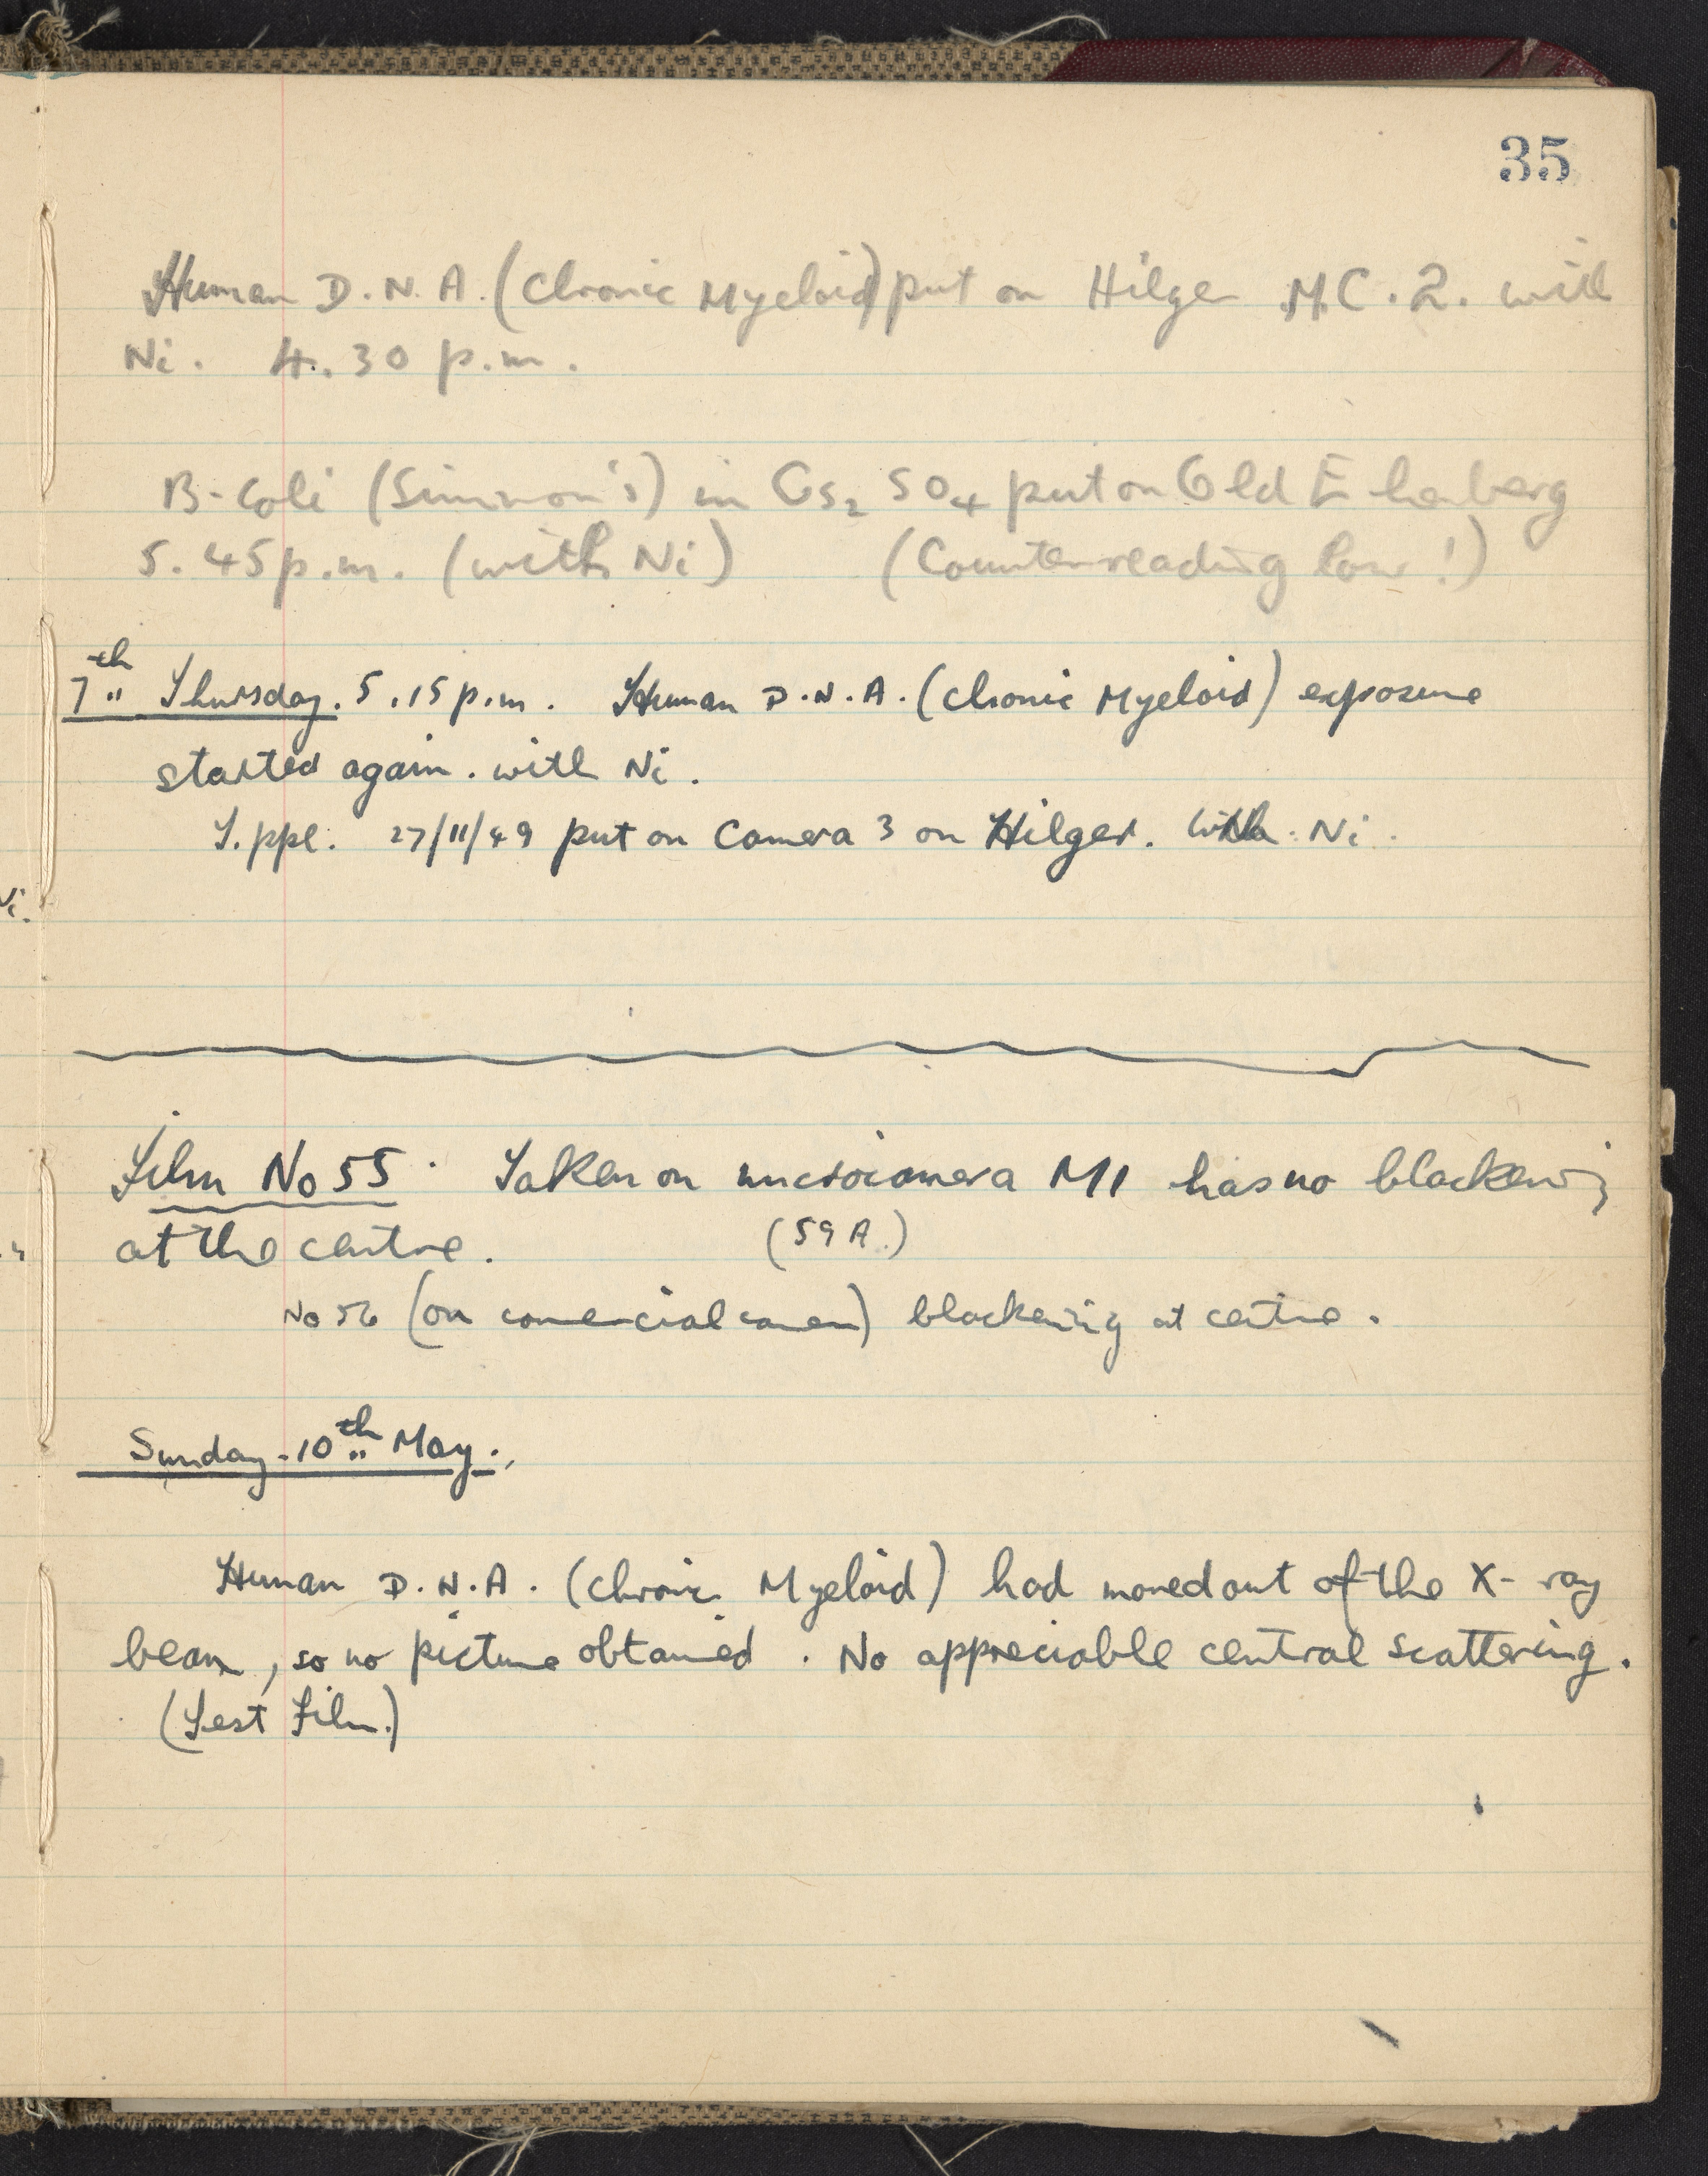 35
Human D.N.A. (Chronic Myeloid) put on Hilger M.C.2. with
Ni. 4.30 p.m.
B-Coli (Simmon's) in Cs₂ SO₄ put on Old Ehrenberg
5.45 p.m. (with Ni) (Counter reading low!)
7th Thursday. 5.15 p.m. Human D.N.A. (Chronic Myeloid) exposure
started again. with Ni.
T.ppl. 27/11/49 put on Camera 3 on Hilger. With Ni.
Ni.
Film No 55. Taken on microcamera M1 has no blackening
at the centre. (59 A.)
No 56 (on comercial camera) blackening at centre.
Sunday. 10th May.
Human D.N.A. (Chronic Myeloid) had moved out of the X-ray
beam, so no picture obtained. No appreciable central scattering.
(Test Film.)